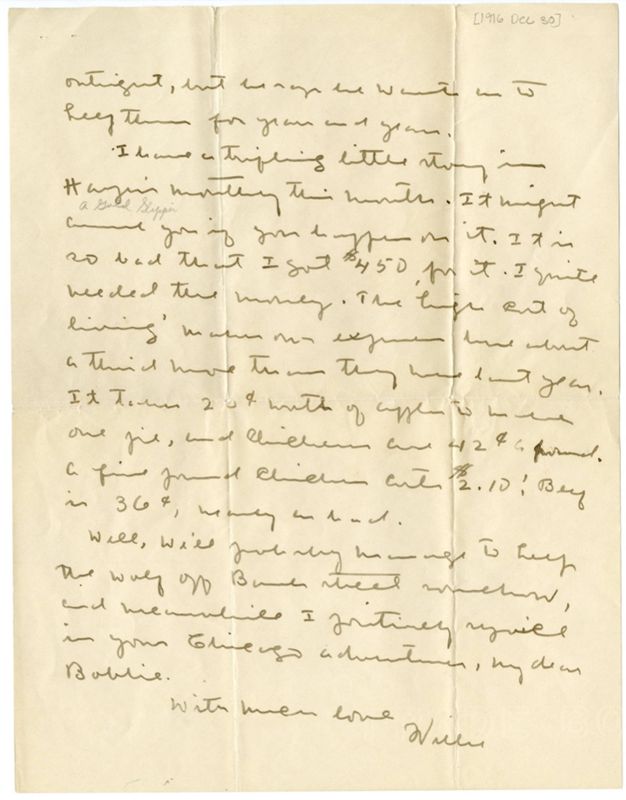 [1916 Dec 30]
outright, but he says he wants us to
keep them for years and years.
I have a trifling little story in
Harper's monthly this month. It might
A Gold Slipper
amuse you if you happen on it. It is
so bad that I got $450, for it. I quite
needed the money. The 'high cost of
living' makes our expenses here about
a third more than they were last year.
It takes 20¢ worth of apples to make
one pie, and chickens are 42¢ a pound.
A five pound chicken costs $2.10! Beef
is 36¢, nearly as bad.
Well, we'll probably manage to keep
the wolf off Bank street somehow,
and meanwhile I positively rejoice
in your Chicago adventures, my dear
Bobbie.
With much love
Willie